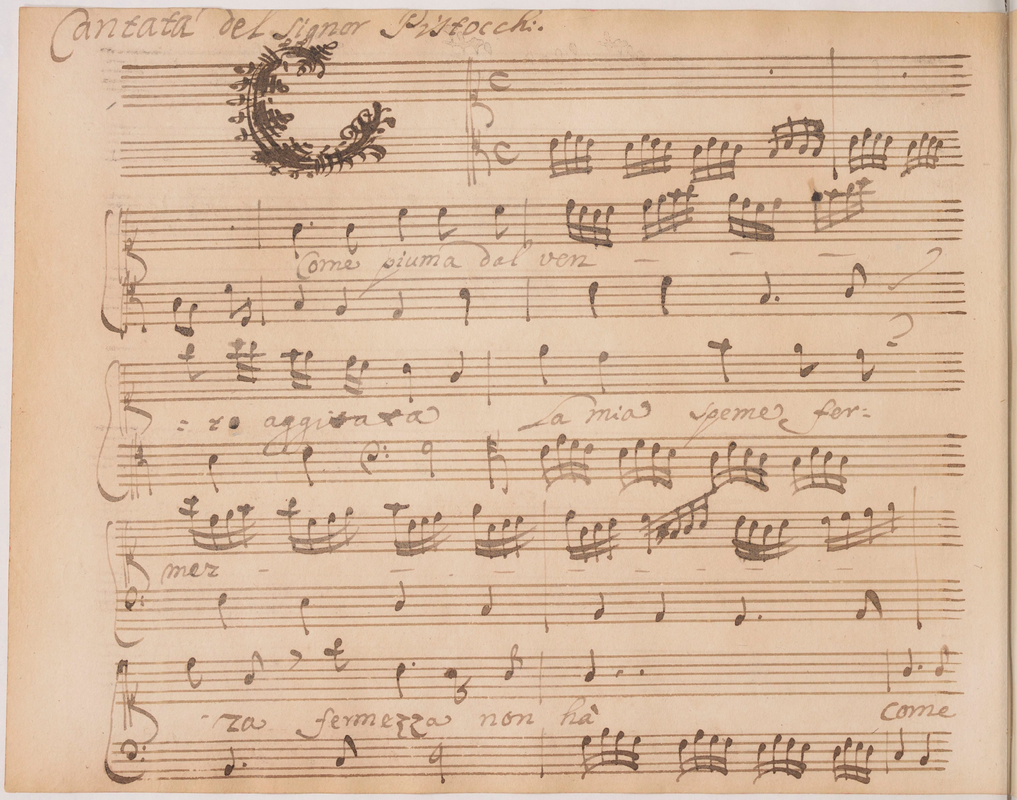 Cantata del Signor Pistocchi.
C
Come piuma dal ven - - -
- to aggitata La mia speme fer=
mez - - - - - - -
-za fermezza non hà come